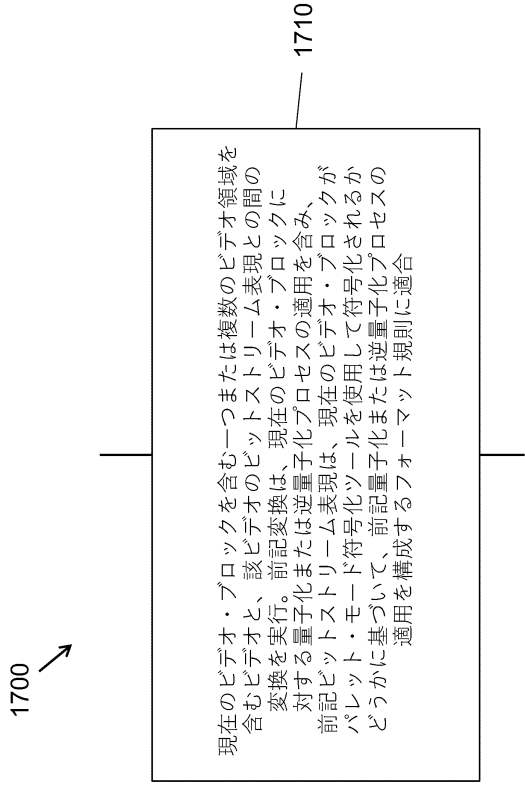 1700
1710
現在のビデオ・ブロックを含む一つまたは複数のビデオ領域を
含むビデオと、該ビデオのビットストリーム表現との間の
変換を実行。前記変換は、現在のビデオ・ブロックに
対する量子化または逆量子化プロセスの適用を含み、
前記ビットストリーム表現は、現在のビデオ・ブロックが
パレット・モード符号化ツールを使用して符号化されるか
どうかに基づいて、前記量子化または逆量子化プロセスの
適用を構成するフォーマット規則に適合